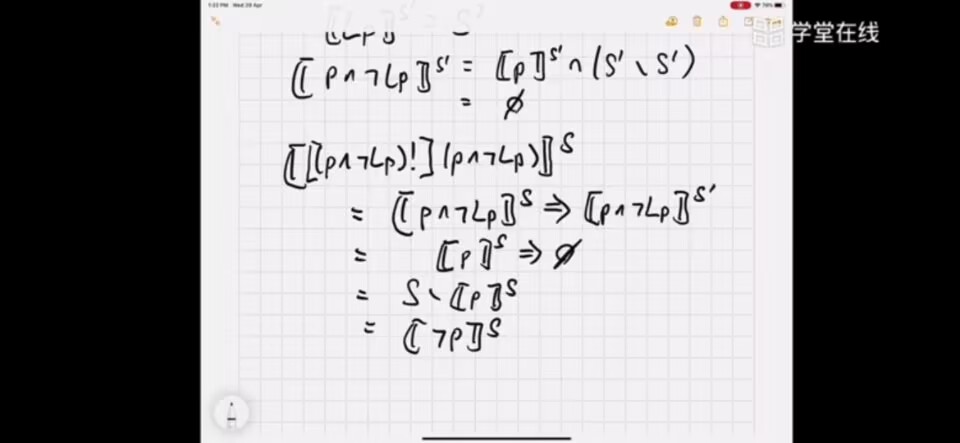 1:22 PM Wed 20 Apr
78%
学堂在线
⟦Lp⟧^{S'} = S'
⟦p∧¬Lp⟧^{S'} = ⟦p⟧^{S'} ∩ (S' \ S')
= ∅
⟦[(p∧¬Lp)!](p∧¬Lp)⟧^S
= ⟦p∧¬Lp⟧^S ⇒ ⟦p∧¬Lp⟧^{S'}
= ⟦p⟧^S ⇒ ∅
= S \ ⟦p⟧^S
= ⟦¬p⟧^S